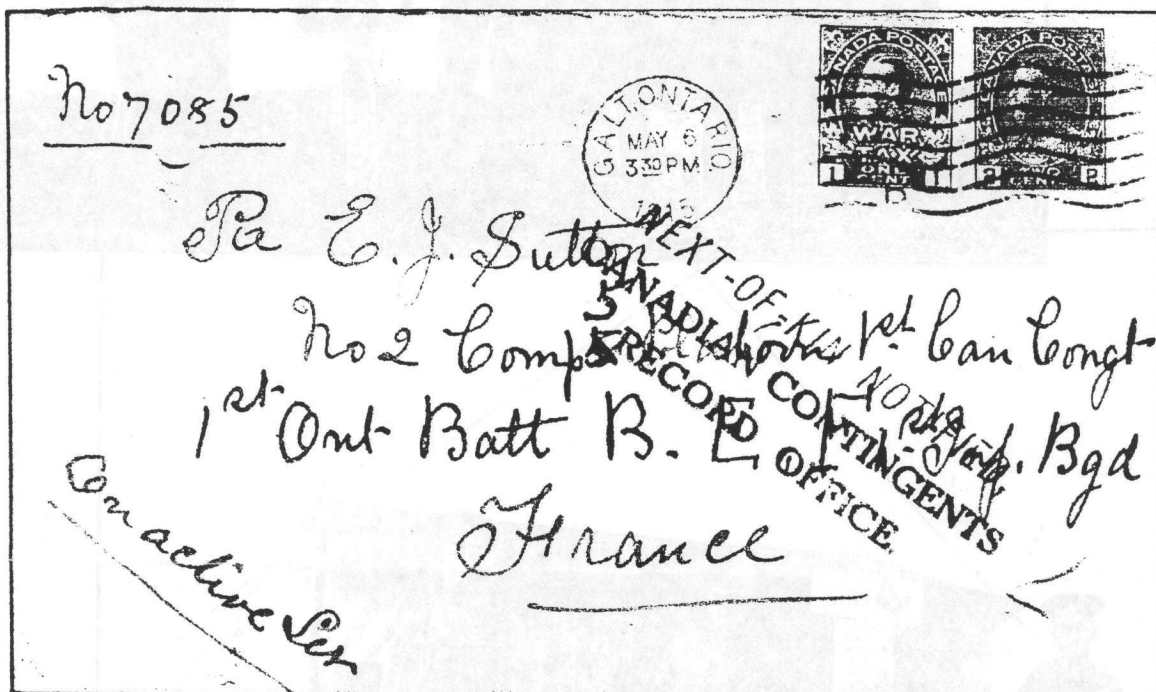 No 7085
GALT, ONTARIO
MAY 6
3 30 PM
1915
CANADA POSTAGE
WAR TAX
1 ONE CENT 1
CANADA POSTAGE
2 TWO CENTS 2
Pte E. J. Sutton
No 2 Comp 1st Can Congt
1st Ont Batt B. E. F. 1st Bgd
France
On active Ser
NEXT-OF-KIN NOTIFIED
CANADIAN CONTINGENTS
RECORD OFFICE.
5